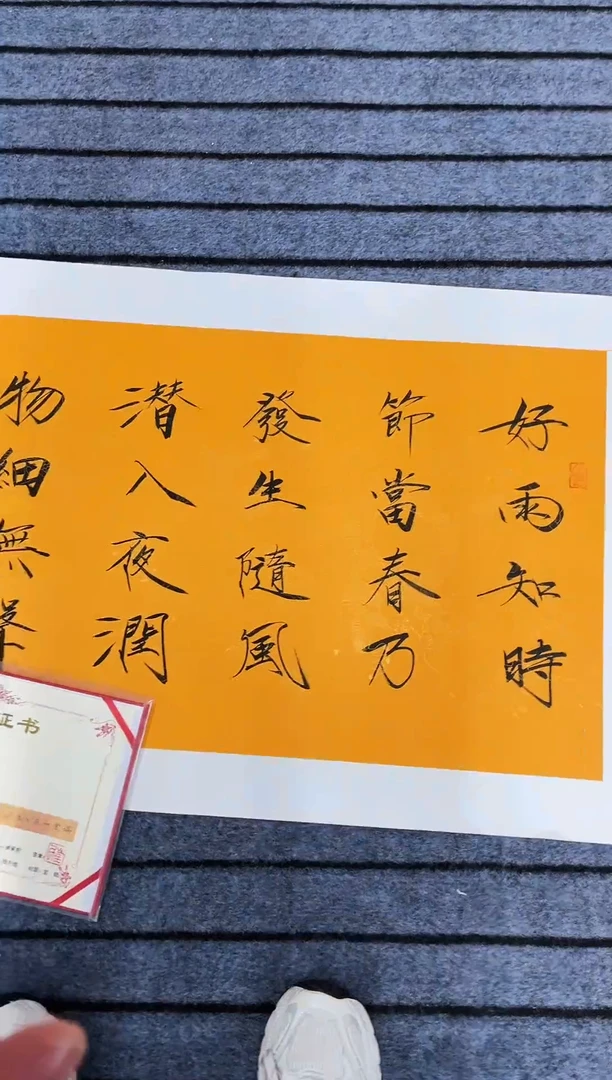 好雨知時
節當春乃
發生隨風
潜入夜潤
物細無聲
证书